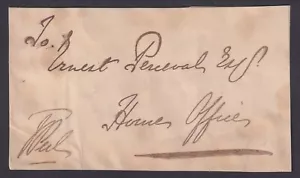 To.
Ernest Perceval Esqr.
Home Office